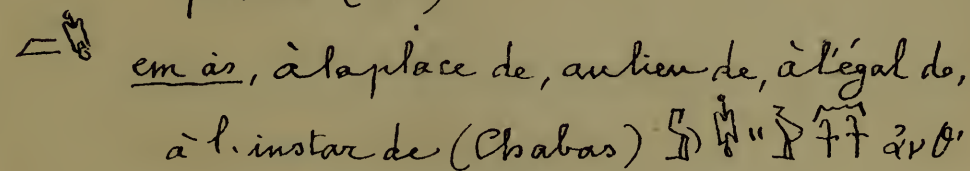 em às, à la place de, au lieu de, à l'égal de,
à l'instar de (Chabas) ἀνθ'